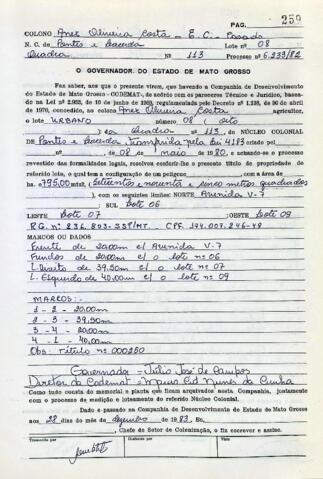 PAG. 259
COLONO Anez Oliveira Costa - E. C. - Casado
N. C. de Pontes e Lacerda Lote nº 08
Quadra Nº 113 Processo nº 6.233/82
O GOVERNADOR DO ESTADO DE MATO GROSSO
Faz saber, aos que o presente virem, que havendo a Companhia de Desenvolvimento
do Estado de Mato Grosso - CODEMAT, de acôrdo com os pareceres Técnico e Jurídico, basea-
do na Lei nº 2.953, de 10 de junho de 1969, regulamentada pelo Decreto nº 1.138, de 30 de abril
de 1970, concedido, ao colono Anez Oliveira Costa agricultor,
o lote URBANO número 08 (oito
) da Quadra nº 113, do NÚCLEO COLONIAL
de Pontes e Lacerda Transferida pela Lei 4189 criado pela
nº de 08 de maio de 1980, e achando-se o processo
revestido das formalidades legais, resolveu conferir-lhe o presente título de propriedade do
referido lote, o qual tem a configuração de um polígono com a área de
ha. 795,00 mts2 (setecentos e noventa e cinco metros quadrados
), com os seguintes limites: NORTE Avenida V-7
SUL lote 06
LESTE lote 07 OESTE lote 09
R.G. nº 236.803-SSP/MT. - CPF. 174.007.246-48
MARCOS OU DADOS
Frente de 20,00m c/ Avenida V-7
Fundos de 20,00m c/ o lote nº 06
L. Direito de 39,50m c/ o lote nº 07
L. Esquerdo de 40,00m c/ o lote nº 09
MARCOS:
1 - 2 - 20,00m
2 - 3 - 39,50m
3 - 4 - 20,00m
4 - 1 - 40,00m
Obs. Título nº 000250
Governador - Júlio José de Campos
Diretor da Codemat - Nunes da Cunha
Como tudo consta do memorial e planta que ficam arquivados nesta Companhia, juntamente
com o processo de medição e loteamento do referido Núcleo Colonial.
Dado e passado na Companhia de Desenvolvimento do Estado de Mato Grosso
aos 28 dias do mês de dezembro de 1983. Eu,
, Chefe do Setor de Colonização, o fiz escrever e assino.
Transcrito por Conferido por Visto